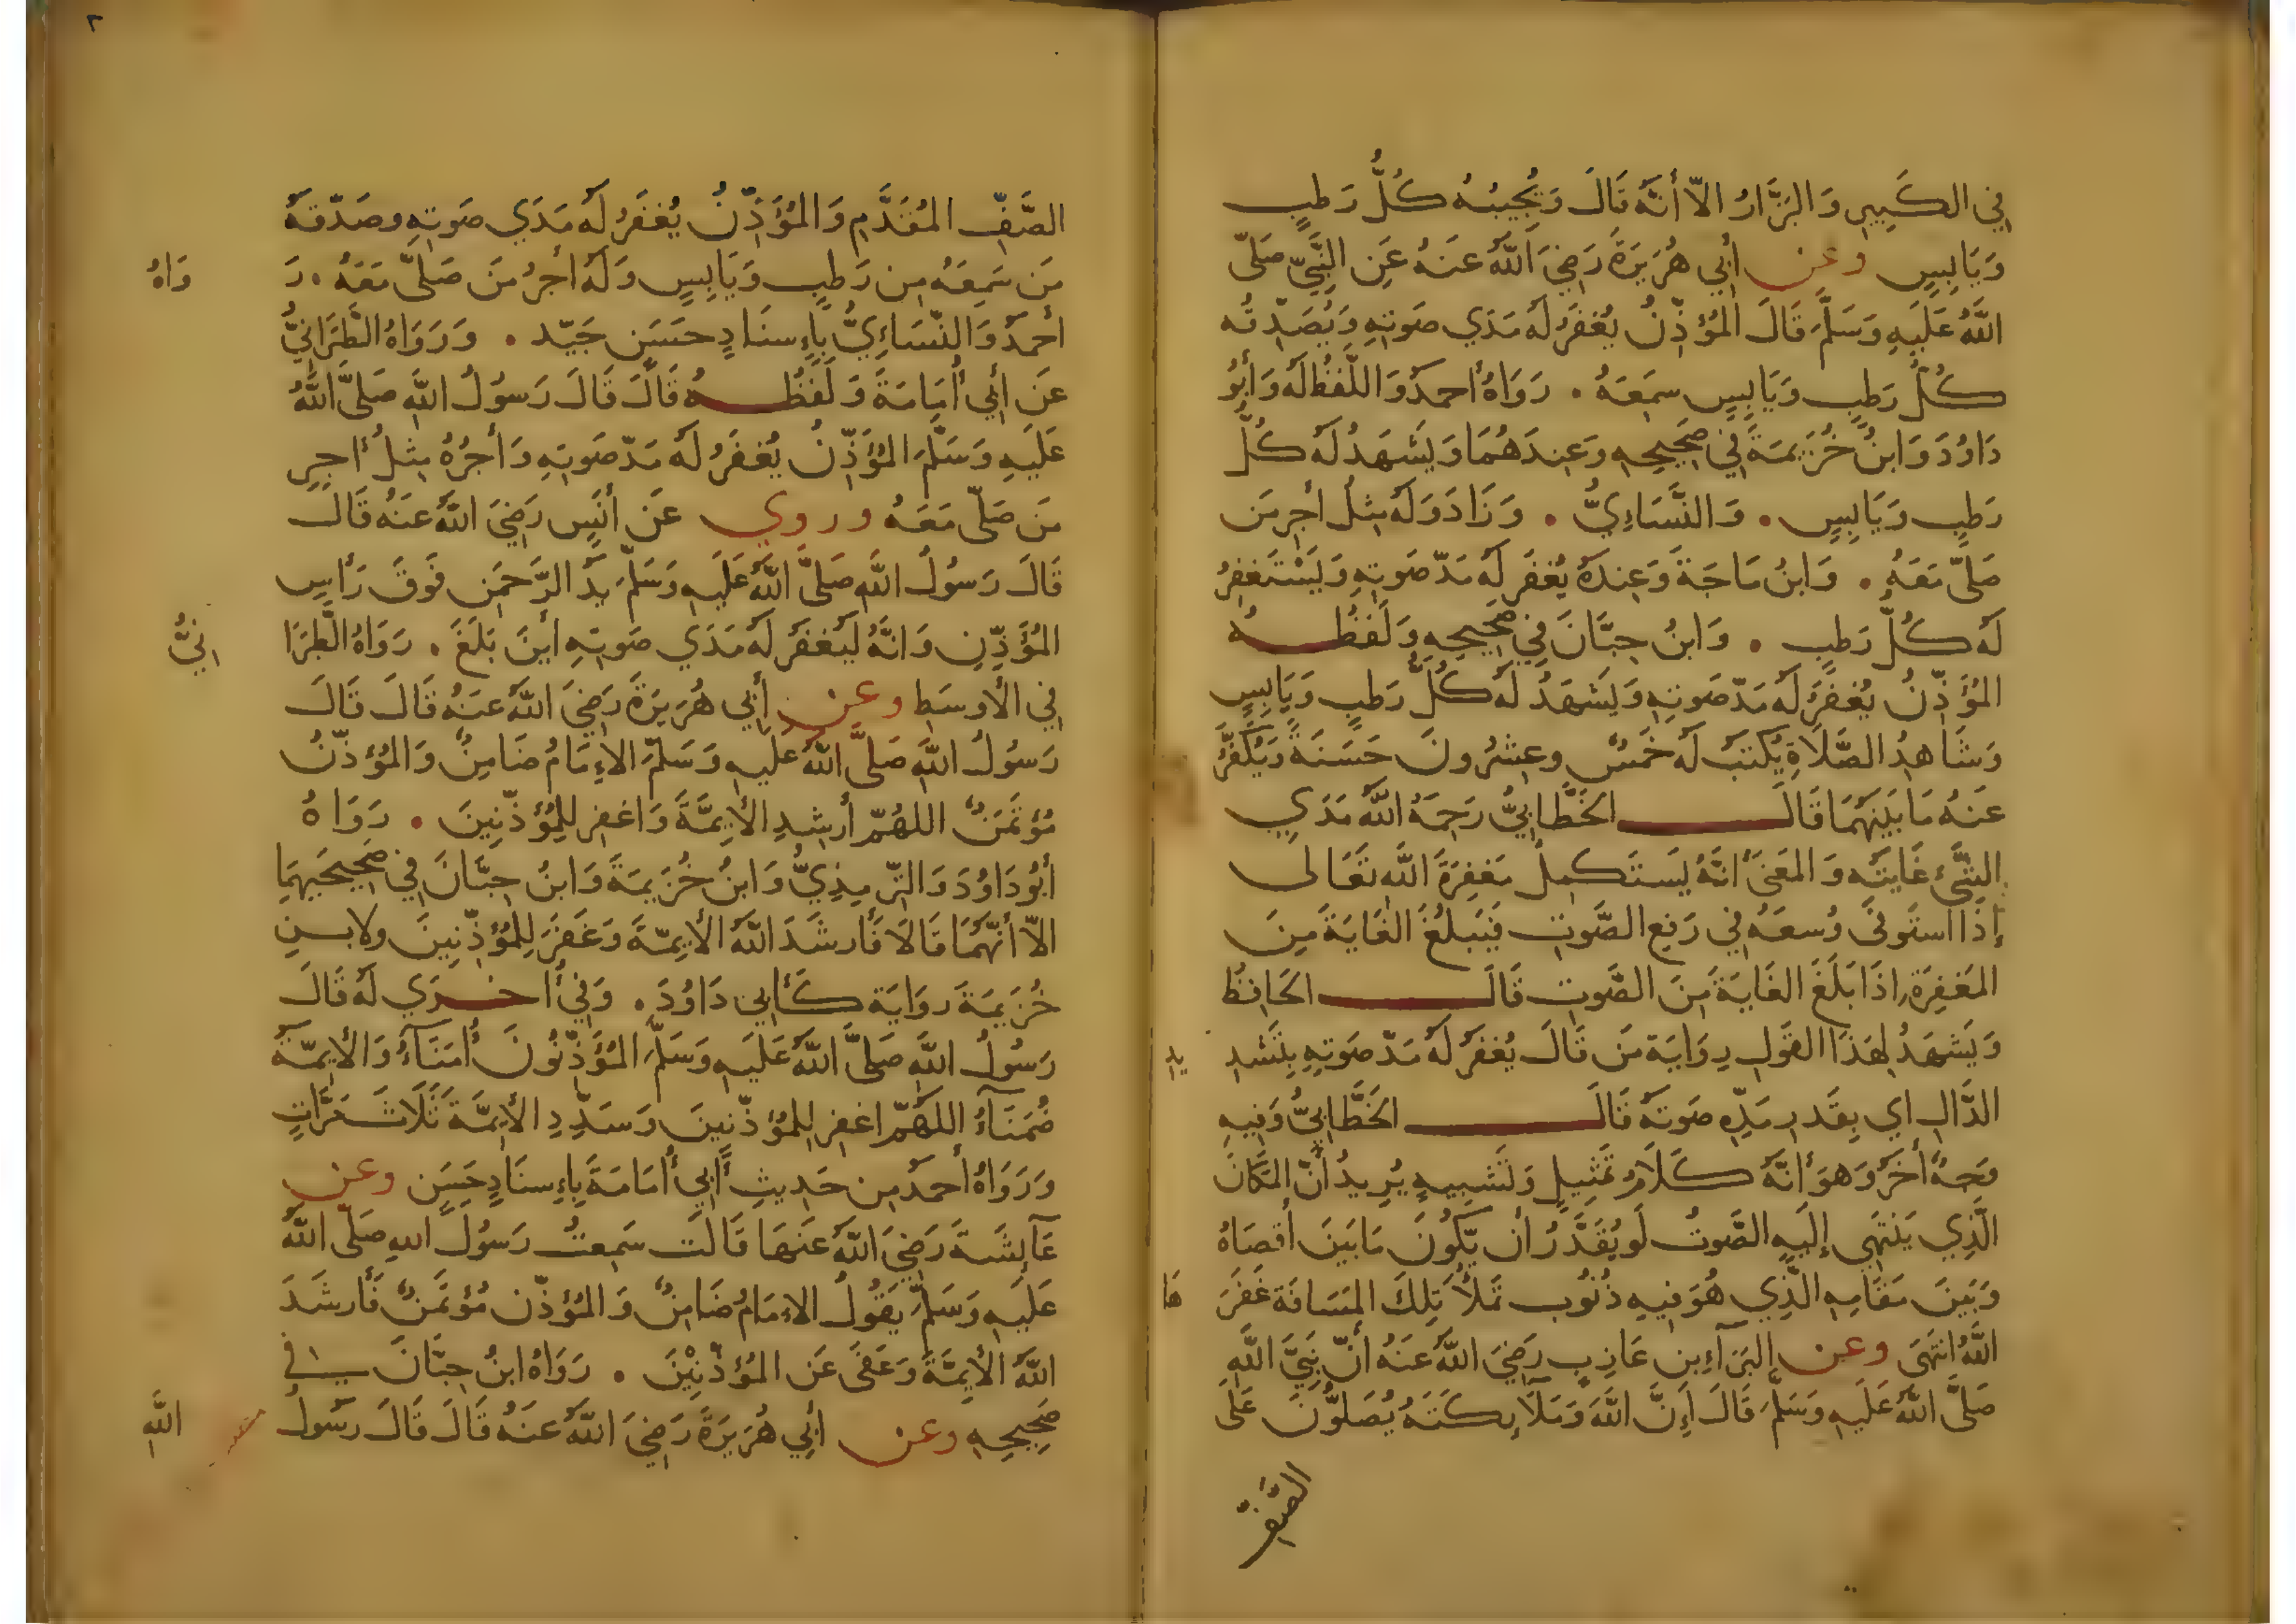 فِي الكَبِيرِ وَالبَزَّارُ الاّ أنَّهُ قَالَ وَيُجِيبُهُ كُلُّ رَطبٍ
وَيَابِسٍ وعن أبِي هُرَيرَةَ رَضِيَ اللّٰهُ عَنهُ عَنِ النَّبِيِّ صَلّى
اللّٰهُ عَلَيهِ وَسَلَّمَ قَالَ المُؤذِّنُ يُغفَرُ لَهُ مَدَي صَوتِهِ وَيُصَدِّقُه
كُلُّ رَطبٍ وَيَابِسٍ سمِعَهُ . رَوَاهُ أحمدُ وَاللّفظُ لَهُ وَأبُو
دَاوُدَ وَابنُ خُزَيمَةَ فِي صَحِيحِهِ وَعِندَهُمَا وَيَشهَدُ لَهُ كُلُّ
رَطبٍ وَيَابِسٍ . وَالنَّسَاءِيُّ . وَزَادَ وَلَهُ مِثلُ أجرِ مَن
صَلَّى مَعَهُ . وَابنُ مَاجَةَ وَعِندَهُ يُغفَر لَهُ مَدّ صَوتِهِ وَيَسْتَغفِرُ
لَهُ كُلُّ رَطبٍ . وَابنُ حِبَّانَ فِي صَحِيحِهِ وَلَفظُـــهُ
المُؤَذِّنُ يُغفَرُ لَهُ مَدّ صَوتِهِ وَيَشهَدُ لَهُ كُلُّ رَطبٍ وَيَابِسٍ
وَشَاهِدُ الصَّلَاةِ يُكتَبُ لَهُ خَمسٌ وعِشرُونَ حَسَنَةً وَيُكَفَّرُ
عَنهُ مَا بَينَهُمَا قَالَــــ الخَطَّابِيُّ رَحِمَهُ اللّٰهُ مَدَي
الشَّئِ غَايَتُه وَالمَعنَى أنَّهُ يَستَكمِلُ مَغفِرَةَ اللّٰهِ تَعَالى
إذَا استَوفَى وُسعَهُ فِي رَفعِ الصَّوتِ فَيَبلُغُ الغَايَةَ مِنَ
المَغفِرَةِ إذَا بَلَغَ الغَايَةَ مِنَ الصَّوتِ قَالَــــ الحَافِظُ
وَيَشهَدُ لِهَذَا القَولِ رِوَايَة مَن قَالَ يُغفَرُ لَهُ مَدّ صَوتِهِ بِتَشدِ يدِ
الدَّالِ اي بِقَدرِ مَدِّهِ صَوتَهُ قَالَــــ الخَطَّابِيُّ وَفِيهِ
وَجهٌ أخَر وَهوَ أنَّهُ كَلَامُ تَمثِيلٍ وَتَشبِيهٍ يُرِيدُ أنَّ المَكَانَ
الَّذِي يَنتَهِي إلَيهِ الصَّوتُ لَو يُقَدَّرُ أن يَّكُونَ مَا بَينَ أقصَاهُ
وَبَينَ مَقَامِهِ الَّذِي هُوَ فِيهِ ذُنُوب تَملَأُ تِلكَ المَسَافَة غَفَرَ هَا
اللّٰهُ انتَهَى وعن البَرَآءِ بن عَازِبٍ رَضِيَ اللّٰهُ عَنهُ أنَّ نَبِيَّ اللّٰهِ
صَلَّى اللّٰهُ عَلَيهِ وَسَلَّمَ قَالَ إنَّ اللّٰهَ وَمَلَآئِكَتَهُ يُصَلُّونَ عَلَى
الصَّفِّ
٢
الصَّفِّ المُقَدَّمِ وَالمُؤَذِّنُ يُغفَرُ لَهُ مَدَي صَوتِهِ وصَدّقَهُ
مَن سَمِعَهُ مِن رَطبٍ وَيَابِسٍ وَلَهُ أجرُ مَن صَلَّى مَعَهُ . رَ وَاهُ
أحمدُ وَالنّسَاءِيُّ بِإسنَادٍ حسَنٍ جَيّد . وَرَوَاهُ الطَّبَرَانِيُّ
عَن أبِي أُمَامَةَ وَلَفظُـــهُ قَالَ قَالَ رَسُولُ اللّٰهِ صَلَّى اللّٰهُ
عَلَيهِ وَسَلَّمَ المُؤَذِّنُ يُغفَرُ لَهُ مَدّ صَوتِهِ وَأجرُهُ مِثلُ أجرِ
مَن صَلَّى مَعَهُ وروي عَن أنَسٍ رَضِيَ اللّٰهُ عَنهُ قَالَ
قَالَ رَسُولُ اللّٰهِ صَلَّى اللّٰهُ عَلَيهِ وَسَلَّمَ يَدُ الرَّحمَنِ فَوقَ رَأسِ
المُؤَذِّنِ وَانَّهُ لَيُغفَرُ لَهُ مَدَي صَوتِهِ أينَ بَلَغَ . رَوَاهُ الطَّبَرَا نِيُّ
فِي الأوسَطِ وعن أبِي هُرَيرَةَ رَضِيَ اللّٰهُ عَنهُ قَالَ قَالَ
رَسُولُ اللّٰهِ صَلَّى اللّٰهُ عَلَيهِ وَسَلَّمَ الإمَامُ ضَامِنٌ وَالمُؤذّنُ
مُؤتَمَنٌ اللهُمّ أرشِدِ الأيِمَّةَ وَاغفِر لِلمُؤَذّنِينَ . رَوَاهُ
أبُو دَاوُدَ وَالتّرمِذِيُّ وَابنُ خُزَيمَةَ وَابنُ حِبَّانَ فِي صَحِيحَيهِمَا
الاّ أنَّهُمَا قَالَا فَأرشَدَ اللّٰهُ الأيِمّةَ وَغَفَرَ لِلمُؤَذِّنِينَ ولابنِ
خُزَيمَةَ رِوَايَة كَأبِي دَاوُدَ . وَفِي أخــرَي لَهُ قَالَ
رَسُولُ اللّٰهِ صَلَّى اللّٰهُ عَلَيهِ وَسَلَّمَ المُؤَذِّنُونَ أُمَنَآءُ وَالأيِمّةُ
ضُمَنَآءُ اللّهُمّ اغفِر لِلمُؤَذّنِينَ وَسَدِّدِ الأيِمَّةَ ثَلَاثَ مَرَّاتٍ
وَرَوَاهُ أحمدُ مِن حَدِيثِ أبِي أُمَامَةَ بِإسنَادٍ حَسَنٍ وعن
عَآئِشَةَ رَضِيَ اللّٰهُ عَنهَا قَالَت سَمِعتُ رَسُولَ اللهِ صَلَّى اللّٰهُ
عَلَيهِ وَسَلَّمَ يَقُولُ الإمَامُ ضَامِنٌ وَالمُؤذّن مُؤتَمَنٌ فَأرشَدَ
اللّٰهُ الأيِمَّةَ وَعَفَى عَن المُؤذّنِيْنَ . رَوَاهُ ابنُ حِبَّانَ فِي
صَحِيحِهِ وعن أبِي هُرَيرَةَ رَضِيَ اللّٰهُ عَنهُ قَالَ قَالَ رسُولُ اللّٰهِ